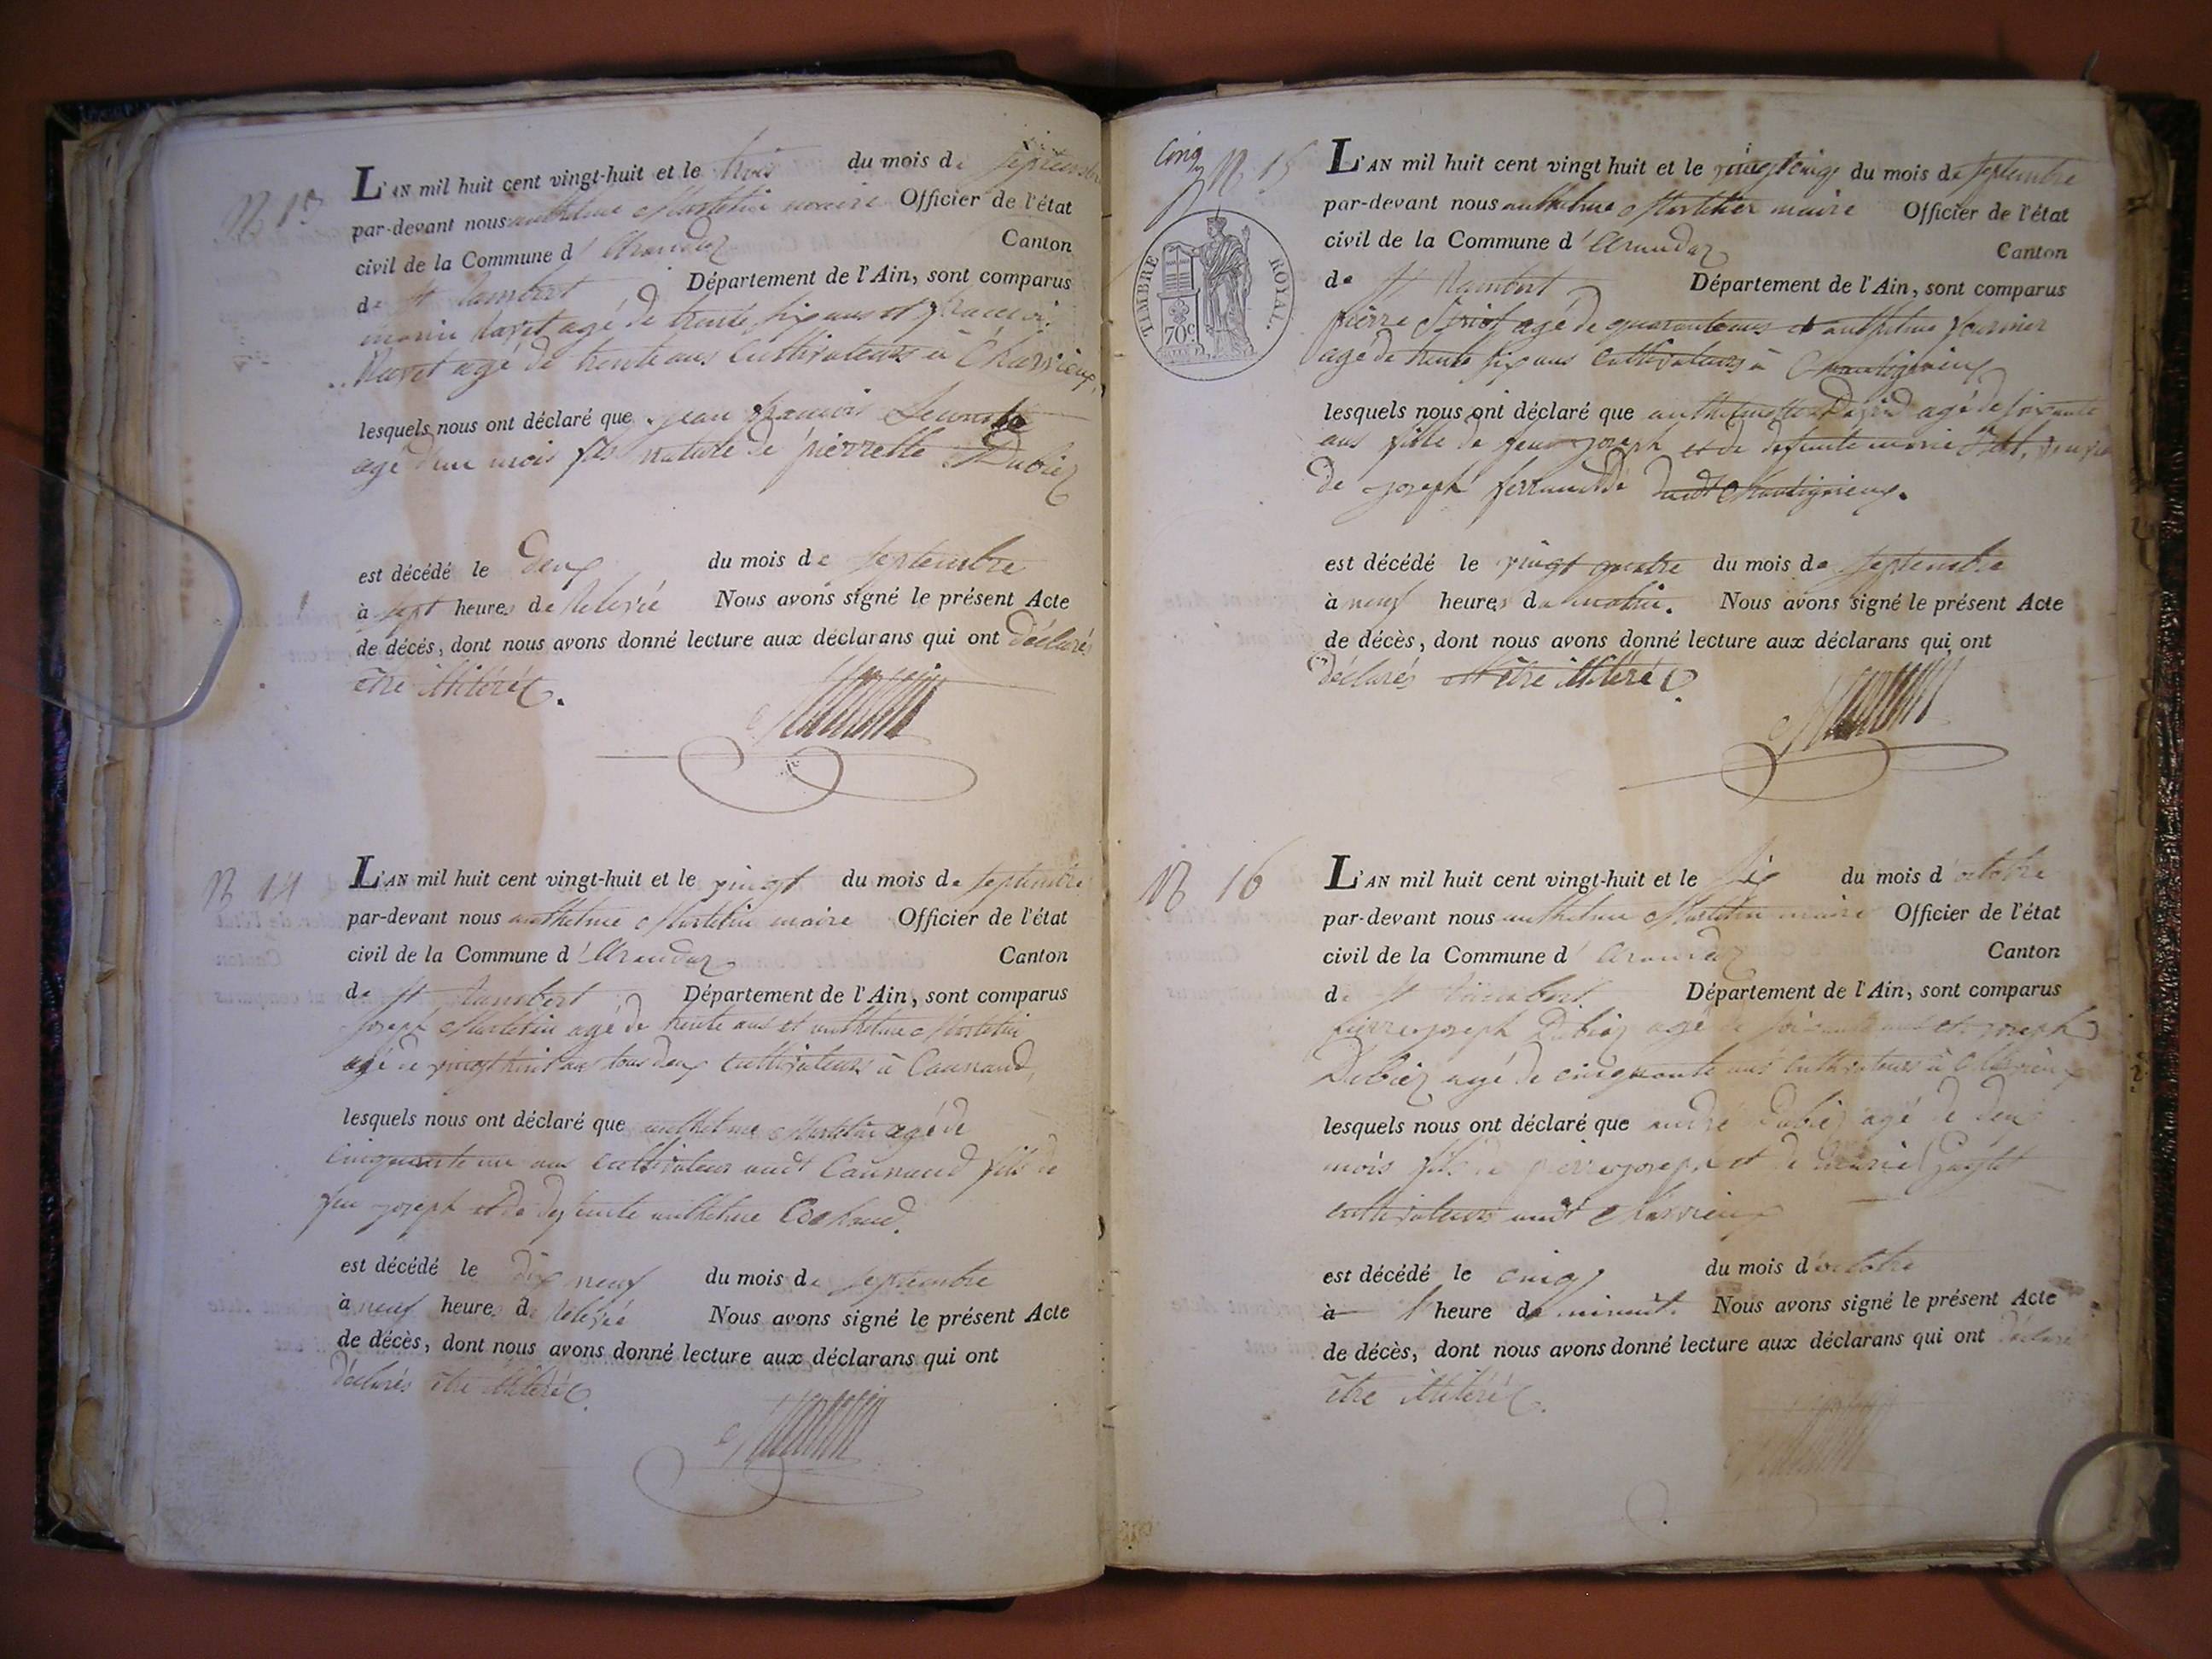 N 13
L'AN mil huit cent vingt-huit et le trois du mois de septembre
par-devant nous anthelme Martelin maire Officier de l'état
civil de la Commune d' Arandaz Canton
de St Rambert Département de l'Ain, sont comparus
agé de trente six ans et francois
Ravet agé de trente ans Cultivateurs à Charvieux,
lesquels nous ont déclaré que jean francois
agé d'un mois fils naturel de pierrette Dubiez
est décédé le deux du mois de septembre
à sept heures de Relevée Nous avons signé le présent Acte
de décés, dont nous avons donné lecture aux déclarans qui ont déclarés
être illitérés.
Martelin
N 14
L'AN mil huit cent vingt-huit et le vingt du mois de septembre
par-devant nous anthelme Martelin maire Officier de l'état
civil de la Commune d' Arandaz Canton
de St Rambert Département de l'Ain, sont comparus
Joseph Martelin agé de trente ans et anthelme Martelin
agé de vingt huit ans tous deux cultivateurs à
lesquels nous ont déclaré que anthelme Martelin agé de
Cinquante un ans cultivateur audt fils de
feu joseph et de defunte anthelme
est décédé le dix neuf du mois de septembre
à neuf heures de Relevée Nous avons signé le présent Acte
de décès, dont nous avons donné lecture aux déclarans qui ont
déclarés être illitérés.
Martelin
cinq
N 15
TIMBRE ROYAL.
70c
L'AN mil huit cent vingt huit et le vingt cinq du mois de septembre
par-devant nous anthelme Martelin maire Officier de l'état
civil de la Commune d' Arandaz Canton
de St Rambert Département de l'Ain, sont comparus
pierre agé de quarante ans et anthelme fournier
agé de trente six ans cultivateurs à
lesquels nous ont déclaré que agé de soixante
ans fille de feu joseph et de defunte marie
de joseph
est décédé le vingt quatre du mois de septembre
à neuf heures du matin. Nous avons signé le présent Acte
de décès, dont nous avons donné lecture aux déclarans qui ont
déclarés être illitérés
Martelin
N 16
L'AN mil huit cent vingt-huit et le six du mois d'octobre
par-devant nous anthelme Martelin maire Officier de l'état
civil de la Commune d' Arandaz Canton
de St Rambert Département de l'Ain, sont comparus
pierre joseph Dubiez agé de soixante ans et joseph
Dubiez agé de cinquante ans cultivateurs à Charvieux
lesquels nous ont déclaré que andré Dubiez agé de deux
mois fils de pierre joseph et de marie
cultivateurs audt Charvieux
est décédé le cinq du mois d'octobre
à heure de minuit. Nous avons signé le présent Acte
de décès, dont nous avons donné lecture aux déclarans qui ont déclaré
être illitérés.